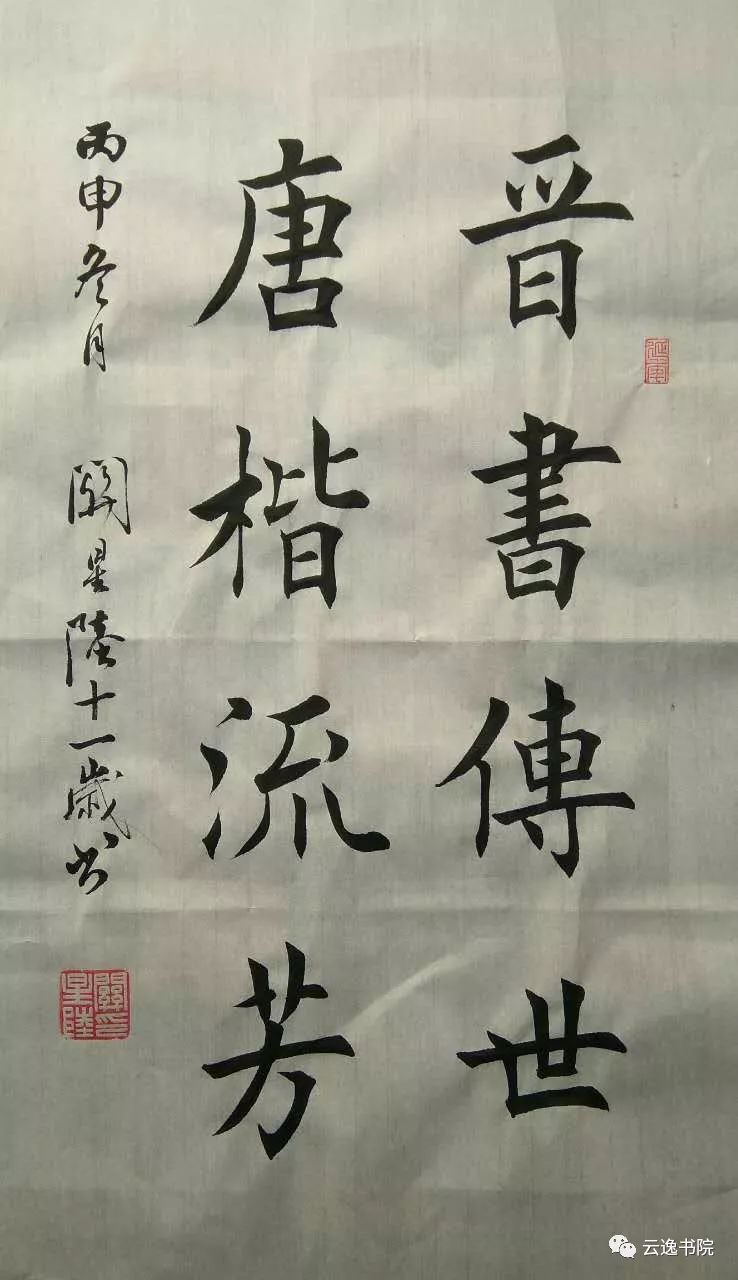 晋書傳世
唐楷流芳
丙申冬月 關星陸十一歲书
關印星陸
云逸书院